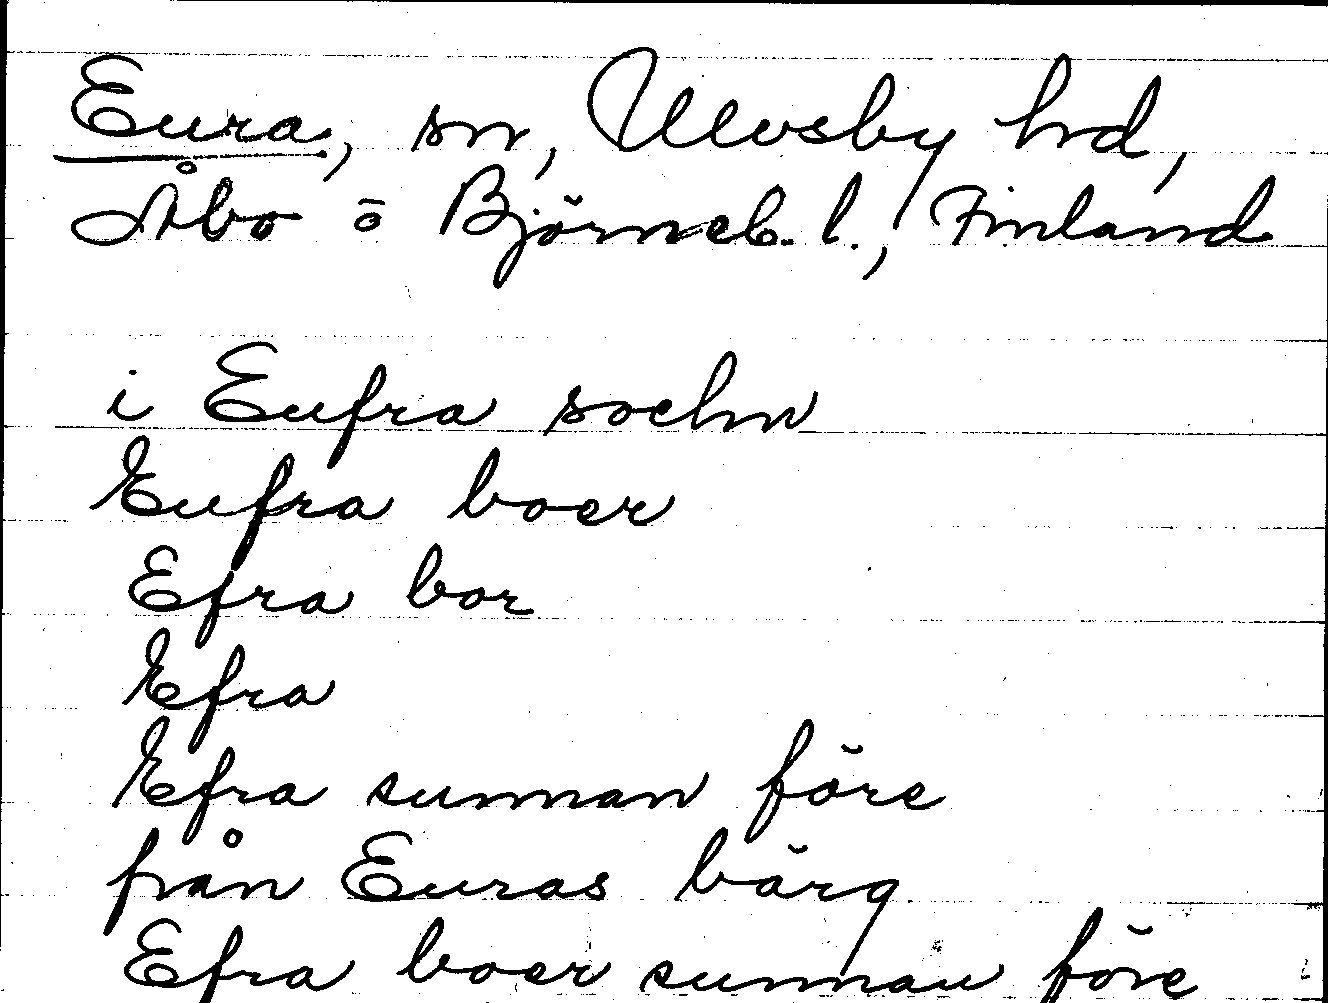 Eura, sn, Ulvsby hd,
Åbo o Björneb. l., Finland
i Eufra sochn
Eufra boer
Efra bor
Efra
Efra sunnan före
från Euras bärg
Efra boer sunnan före